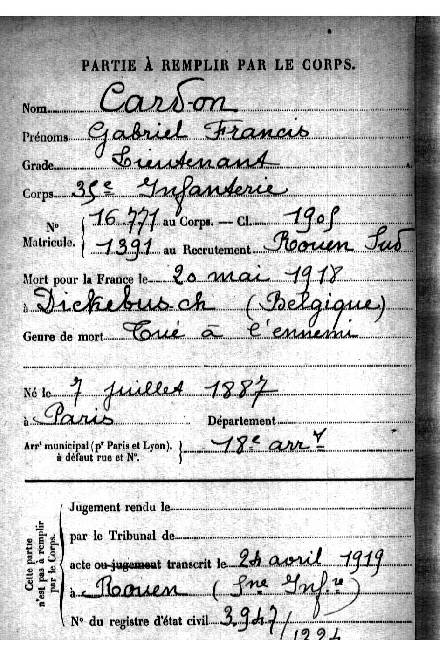 PARTIE À REMPLIR PAR LE CORPS.
Nom Cardon
Prénoms Gabriel Francis
Grade Lieutenant
Corps 35e Infanterie
No Matricule. { 16.771 au Corps. — Cl. 1905
1391 au Recrutement Rouen Sud
Mort pour la France le 20 mai 1918
à Dickebusch (Belgique)
Genre de mort Tué à l'ennemi
Né le 7 juillet 1887
à Paris Département
Arrt municipal (pr Paris et Lyon), à défaut rue et No. } 18e arrt
Cette partie n'est pas à remplir par le Corps.
Jugement rendu le
par le Tribunal de
acte ou jugement transcrit le 24 avril 1919
à Rouen (Sne Infre)
No du registre d'état civil 3947/
1224